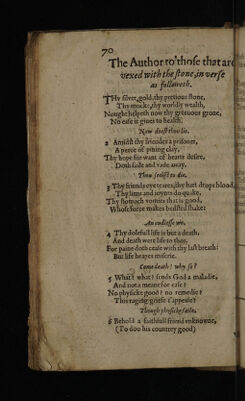 70
The Author to those that are
vexed with the stone, in verse
as followeth.
THy silver, gold, thy pretious stone,
Thy mucke, thy worldly wealth,
Nought helpeth now thy grevous grone,
No ease it gives to health.
Now doest thou lie.
2 Amidst thy friendes a prisoner,
A peece of pining clay,
Thy hope for want of hearts desire,
Doth fade and vade away.
Thou seekst to die.
3 Thy friends eye teares, thy hart drops blood,
Thy lims and joynts do quake,
Thy stomach vomits that is good,
Whose force makes bulke to shake:
An endlesse wo.
4 Thy dolefull life is but a death,
And death were life to thee,
For paine doth cease with thy last breath:
But life heapes miserie.
Come death: why so?
5 What? what? sends God a maladie,
And not a meane for ease?
No physicke good? no remedie?
This raging griefe t'appease?
Though physicke faile,
6 Behold a faithfull friend unknowne,
(To doo his countrey good)